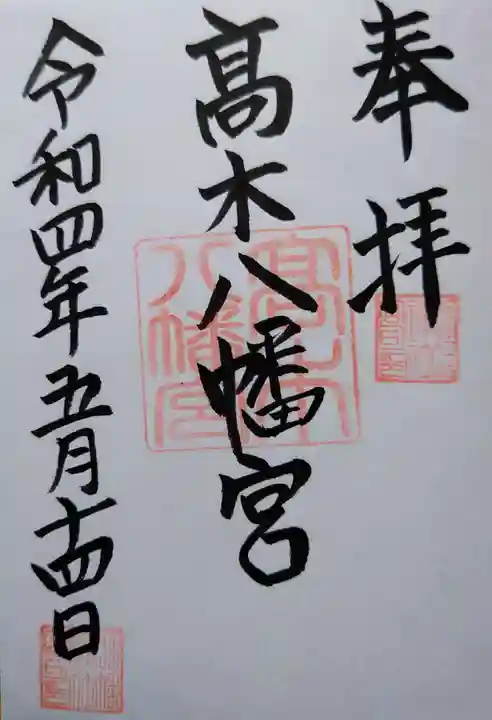 奉拝
髙木八幡宮
令和四年五月十四日
髙木八幡宮